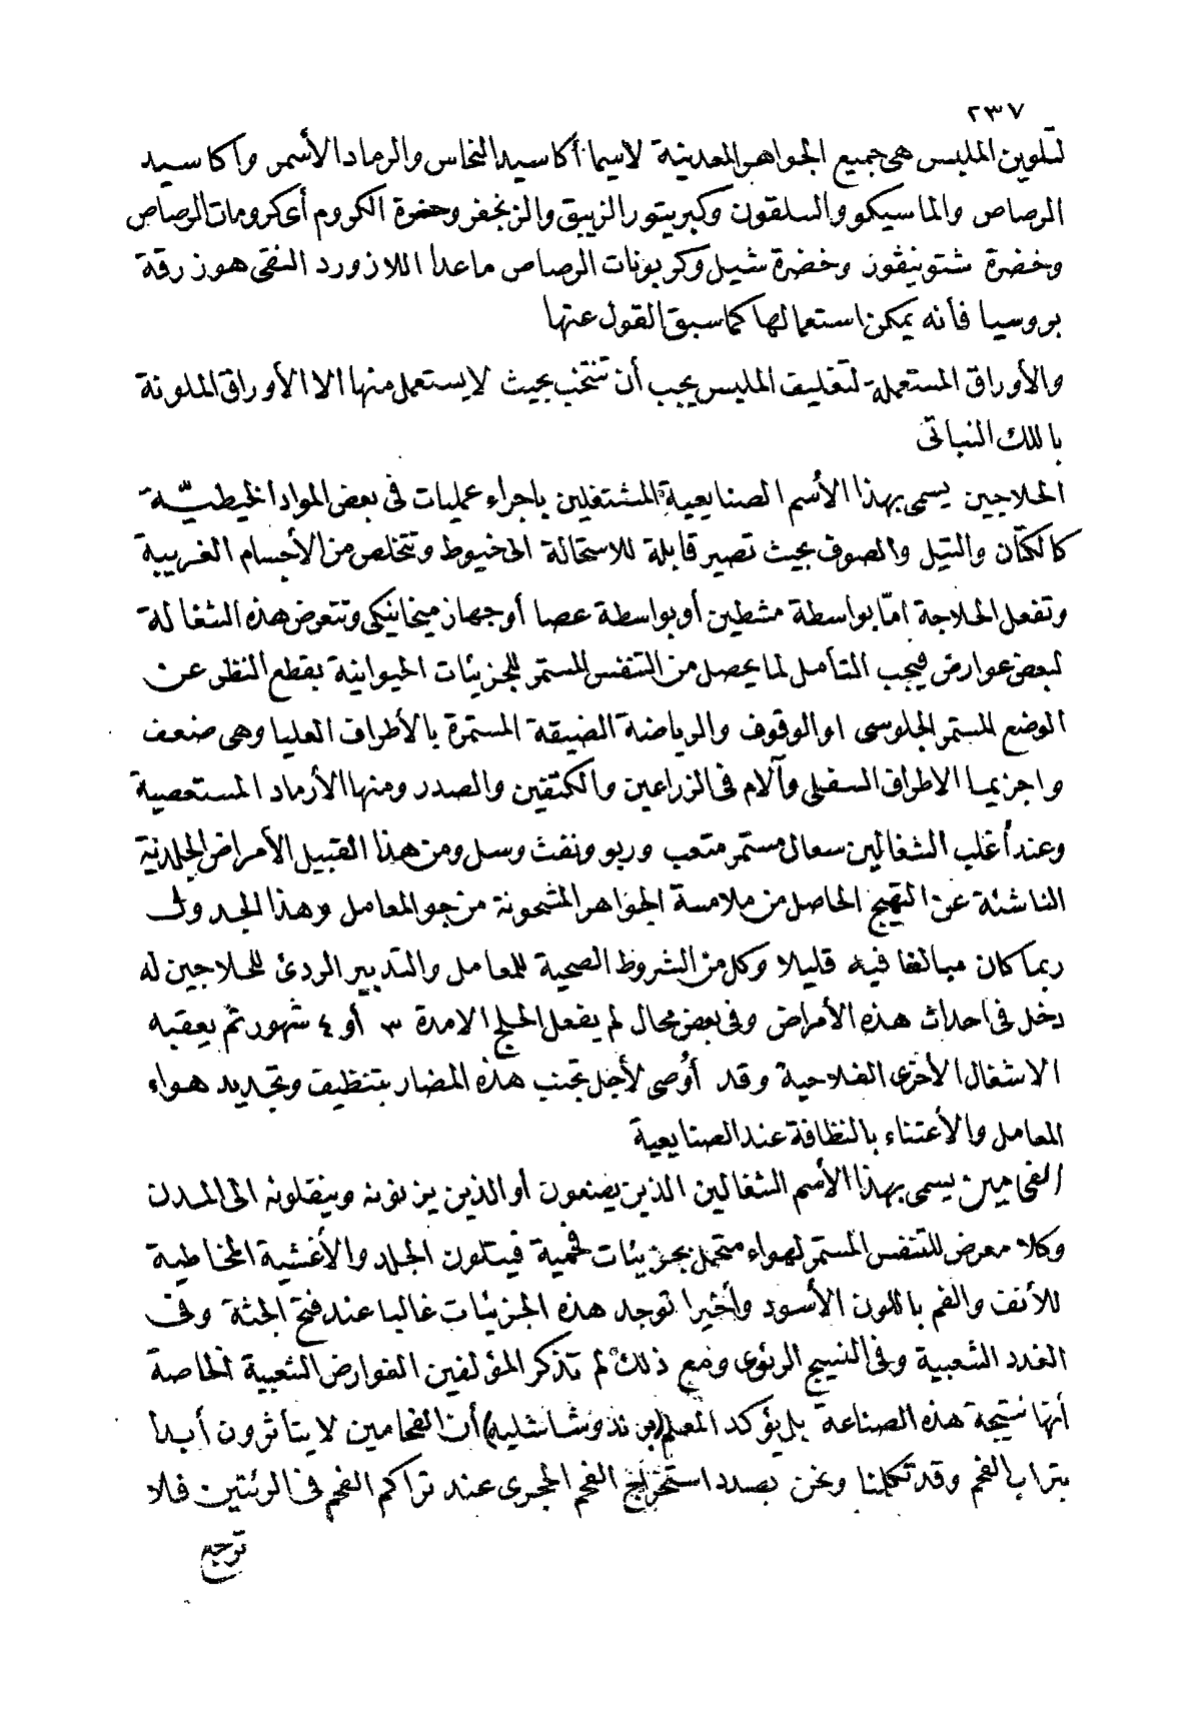 ٢٣٧
لتلوين الملبس هى جميع الجواهر المعدنية لاسيما أكاسيد النحاس والرماد الأسمر وأكاسيد
الرصاص والماسيكو والسلقون وكبريتور الزيبق والزنجفر وخضرة الكروم أى كرومات الرصاص
وخضرة شتوينفوز وخضرة شيل وكربونات الرصاص ماعدا اللازورد النقى هو زرقة
بروسيا فأنه يمكن استعمالها كما سبق القول عنها
والأوراق المستعملة لتغليف الملبس يجب أن تنتخب بحيث لايستعمل منها الا الأوراق الملونة
باللك النباتى
الحلاجين يسمى بهذا الأسم الصنايعية المشتغلين باجراء عمليات فى بعض المواد الخيطيّة
كالكتّان والتيل والصوف بحيث تصير قابلة للاستحالة الى خيوط وتتخلص من الأجسام الغريبة
وتفعل الحلاجة امّا بواسطة مشطين أو بواسطة عصا أو جهاز ميخانيكى وتتعرض هذه الشغالة
لبعض عوارض فيجب التأمل لما يحصل من التنفس المستمر للجزيئات الحيوانية بقطع النظر عن
الوضع المستمر الجلوسى او الوقوف والرياضة الضيقة المستمرة بالأطراف العليا وهى ضعف
واجزيما الاطراف السفلى وآلام فى الزراعين والكتفين والصدر ومنها الأرماد المستعصية
وعند أغلب الشغالين سعال مستمر متعب وربو ونفث وسل ومن هذا القبيل الأمراض الجلدية
الناشئة عن التهيج الحاصل من ملامسة الجواهر المشحونة من جو المعامل وهذا الجدول
ربما كان مبالغا فيه قليلا وكل من الشروط الصحية للمعامل والتدبير الردئ للحلاجين له
دخل فى احداث هذه الأمراض وفى بعض محال لم يفعل الحلج الا مدة ٣ أو ٤ شهور ثم يعقبه
الاشغال الأخرى الفلاحية وقد أوصى لأجل تجنب هذه المضار بتنظيف وتجديد هواء
المعامل والأعتناء بالنظافة عند الصنايعية
الفحامين يسمى بهذا الأسم الشغالين الذين يصنعون أو الذين يزنونه وينقلونه الى المدن
وكلا معرض للتنفس المستمر لهواء متحمل بجزيئات فحمية فيتلون الجلد والأغشية المخاطية
للأنف والفم باللون الأسود وأخيرا توجد هذه الجزيئات غالبا عند فتح الجثة وفى
الغدد الشعبية وفى النسيج الرئوى ومع ذلك لم تذكر المؤلفين العوارض الشعبية الخاصة
أنها نتيجة هذه الصناعة بل يؤكد المعلم (برندوشاشليه) أن الفحامين لا يتأثرون أبدا
بتراب الفحم وقد تكلمنا ونحن بصدد استخراج الفحم الحجرى عند تراكم الفحم فى الرئتين فلا
ترجع